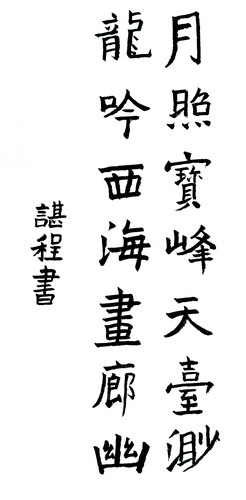 月照寶峰天臺渺
龍吟西海畫廊幽
諶程書